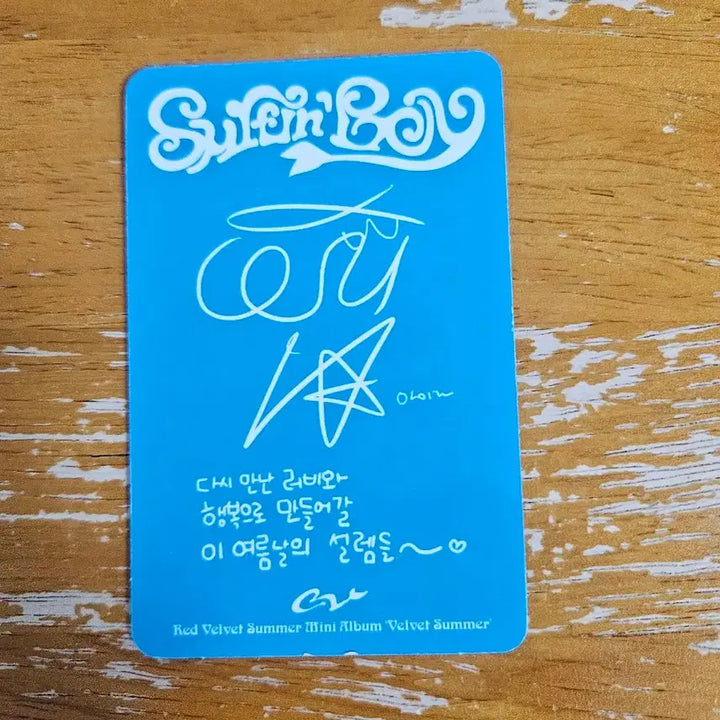 Surfin' Boy
아이린
다시 만난 러비와
행복으로 만들어갈
이 여름날의 설렘들~♡
Red Velvet Summer Mini Album 'Velvet Summer'